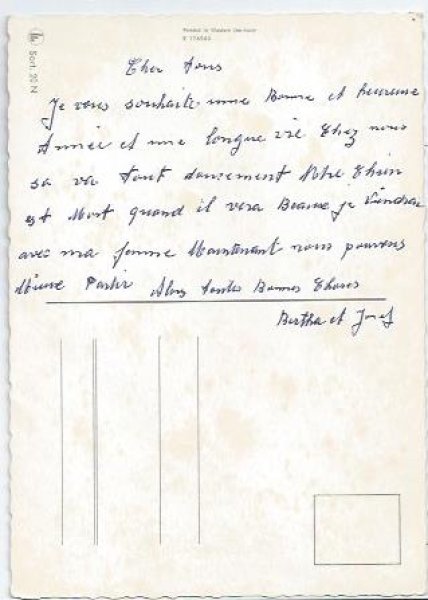 Printed in Western Germany
Sort. 20 N
Cher tous
Je vous souhaite une Bonne et heureuse
Année et une longue vie Chez nous
sa va tout doucement Notre Chien
est Mort quand il vera Beaux je Viendrai
avec ma femme Maintenant nous pouvons
Mieux Partir Alors toutes Bonnes Choses
Bertha et Josef